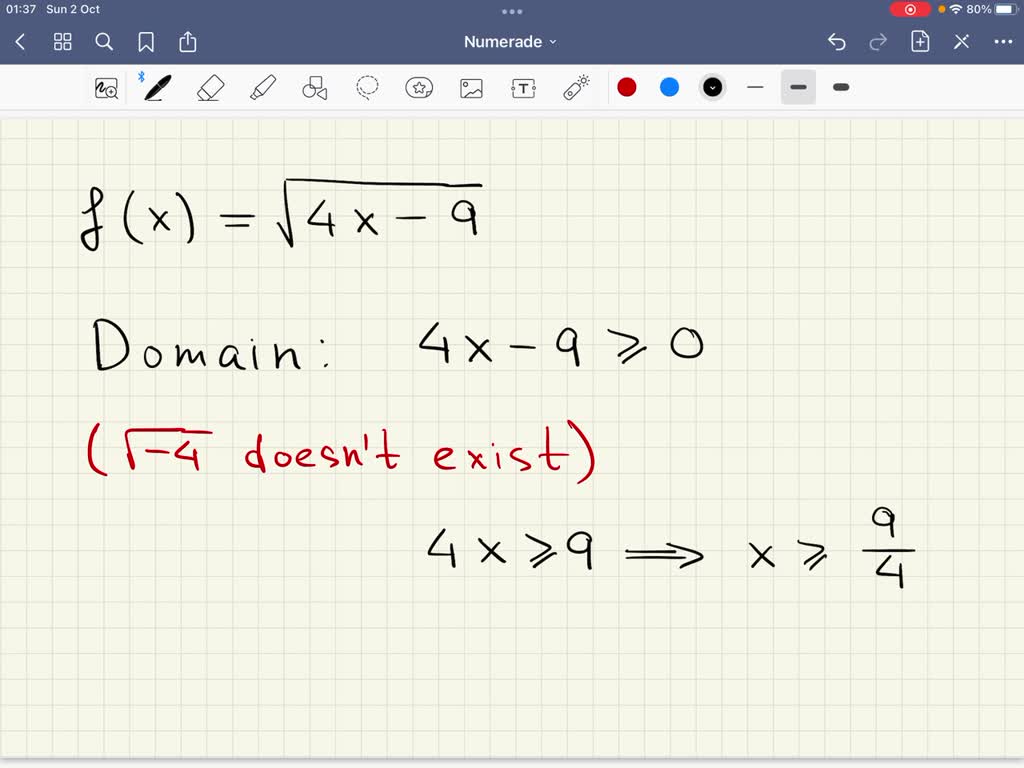 01:37 Sun 2 Oct 80%
Numerade
T
f(x) = √4x - 9
Domain: 4x - 9 ⩾ 0
(√-4 doesn't exist)
4x ⩾ 9 ⟹ x ⩾ 9/4